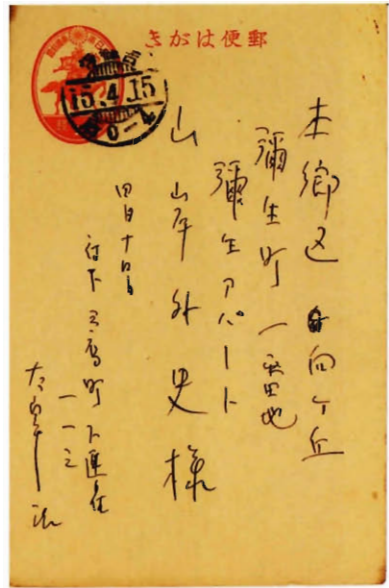 郵便はがき
15.4.15
本郷区 向ヶ丘
彌生町 一番地
彌生アパート
山岸外史様
府下三鷹町下連雀
一一三
太宰治